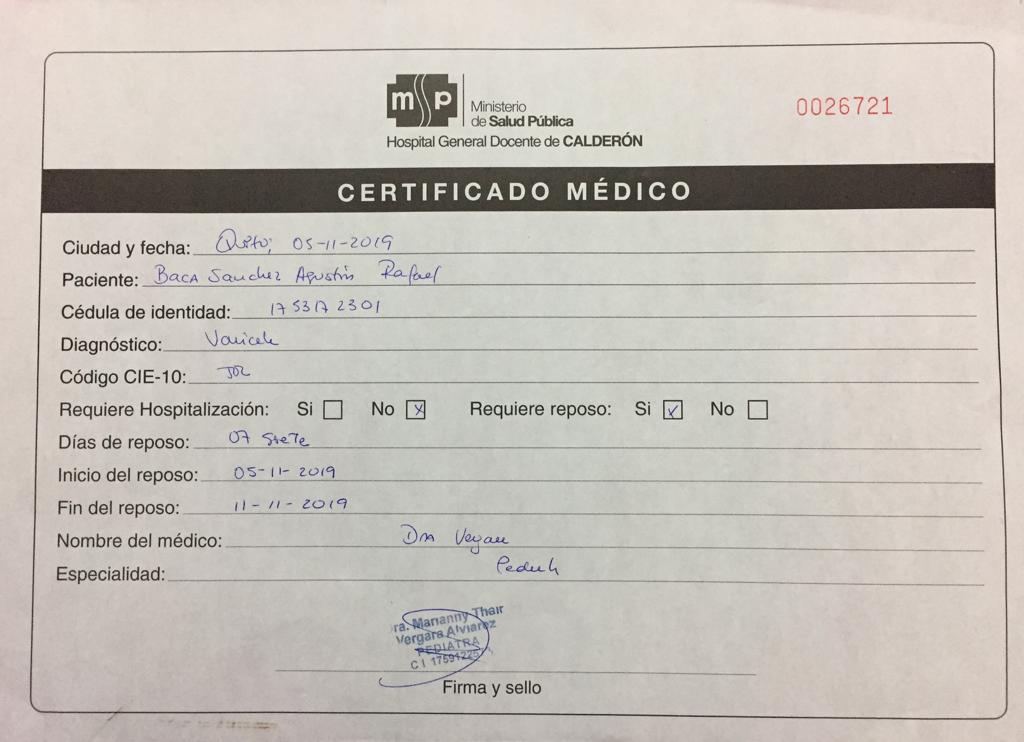 msp
Ministerio
de Salud Pública
Hospital General Docente de CALDERÓN
0026721
CERTIFICADO MÉDICO
Ciudad y fecha: Quito; 05-11-2019
Paciente: Baca Sanchez Agustin Rafael
Cédula de identidad: 1753172301
Diagnóstico: Varicela
Código CIE-10:
Requiere Hospitalización: Si No x Requiere reposo: Si x No
Días de reposo: 07 siete
Inicio del reposo: 05-11-2019
Fin del reposo: 11-11-2019
Nombre del médico: Dra
Especialidad:
ra. Marianny Thair
Vergara Alviarez
PEDIATRA
C I
Firma y sello